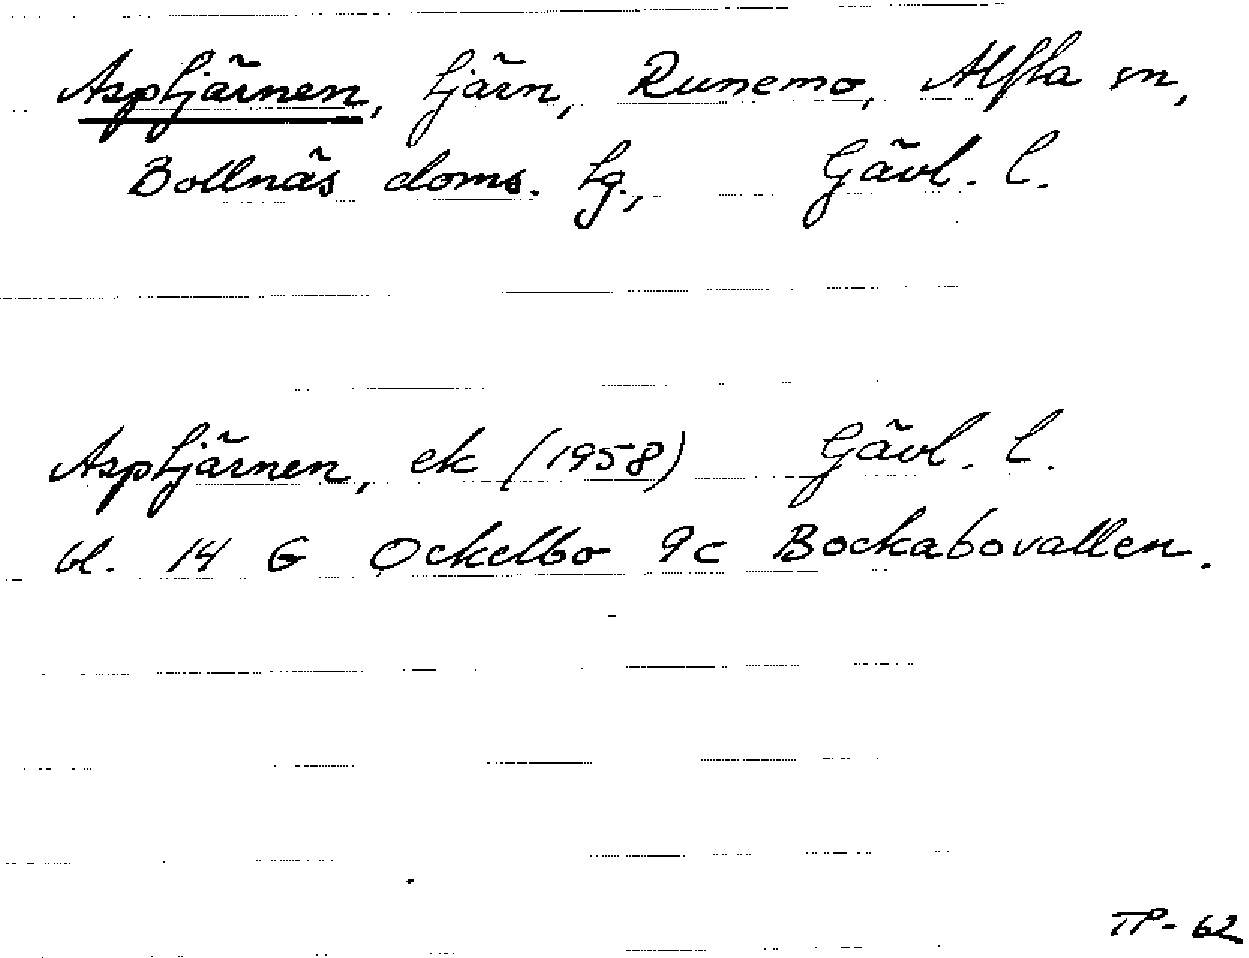 Asptjärnen, tjärn, Runemo, Alfta sn,
Bollnäs doms. tg., Gävl. l.
Asptjärnen, ek (1958) Gävl. l.
bl. 14 G Ockelbo 9c Bockabovallen.
TP-62